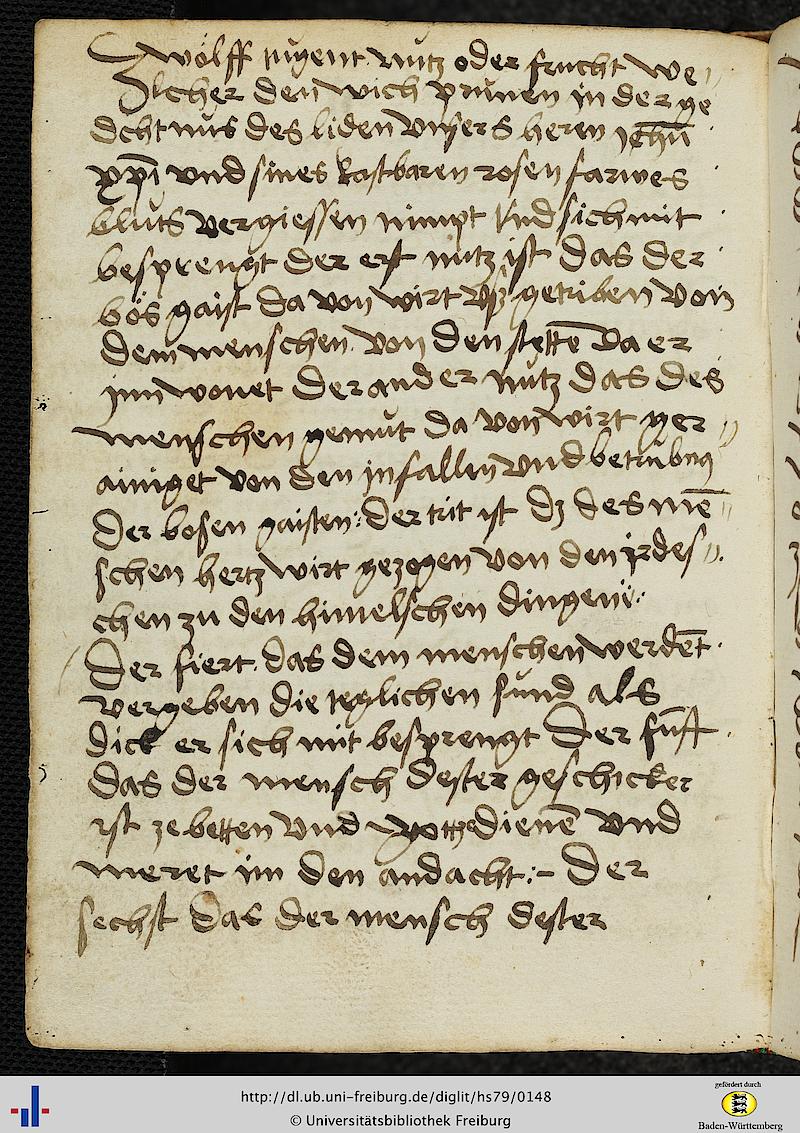 Zwölff tugent nutz oder frucht we
lcher den wich prunen in der ge
dchtnus des liden vnsers heren jehū
xpī vnd sines kastbaren rosen farwes
bluts vergiessen nimpt vnd sich mit
besprengt der erst nutz ist das der
bös gaist da von wirt vß getriben von
dem menschen von den stettē da er
jnn wonet der ander nutz das des
menschen gemut da von wirt ger
ainiget von den jnfallen vnd betrubng
der bosen gaisten: der trit ist dz des mē
schen hertz wirt gezogen von den jrdes
chen zu den himelschen dingen:
Der fiert das dem menschen werdēt
vergeben die teglichen sünd als
dick er sich mit besprengt Der fünft
das der mensch dester geschicker
ist ze betten vnd gottze dienē vnd
meret im den andacht:- Der
sechst das der mensch dester
http://dl.ub.uni-freiburg.de/diglit/hs79/0148
© Universitätsbibliothek Freiburg
gefördert durch
Baden-Württemberg